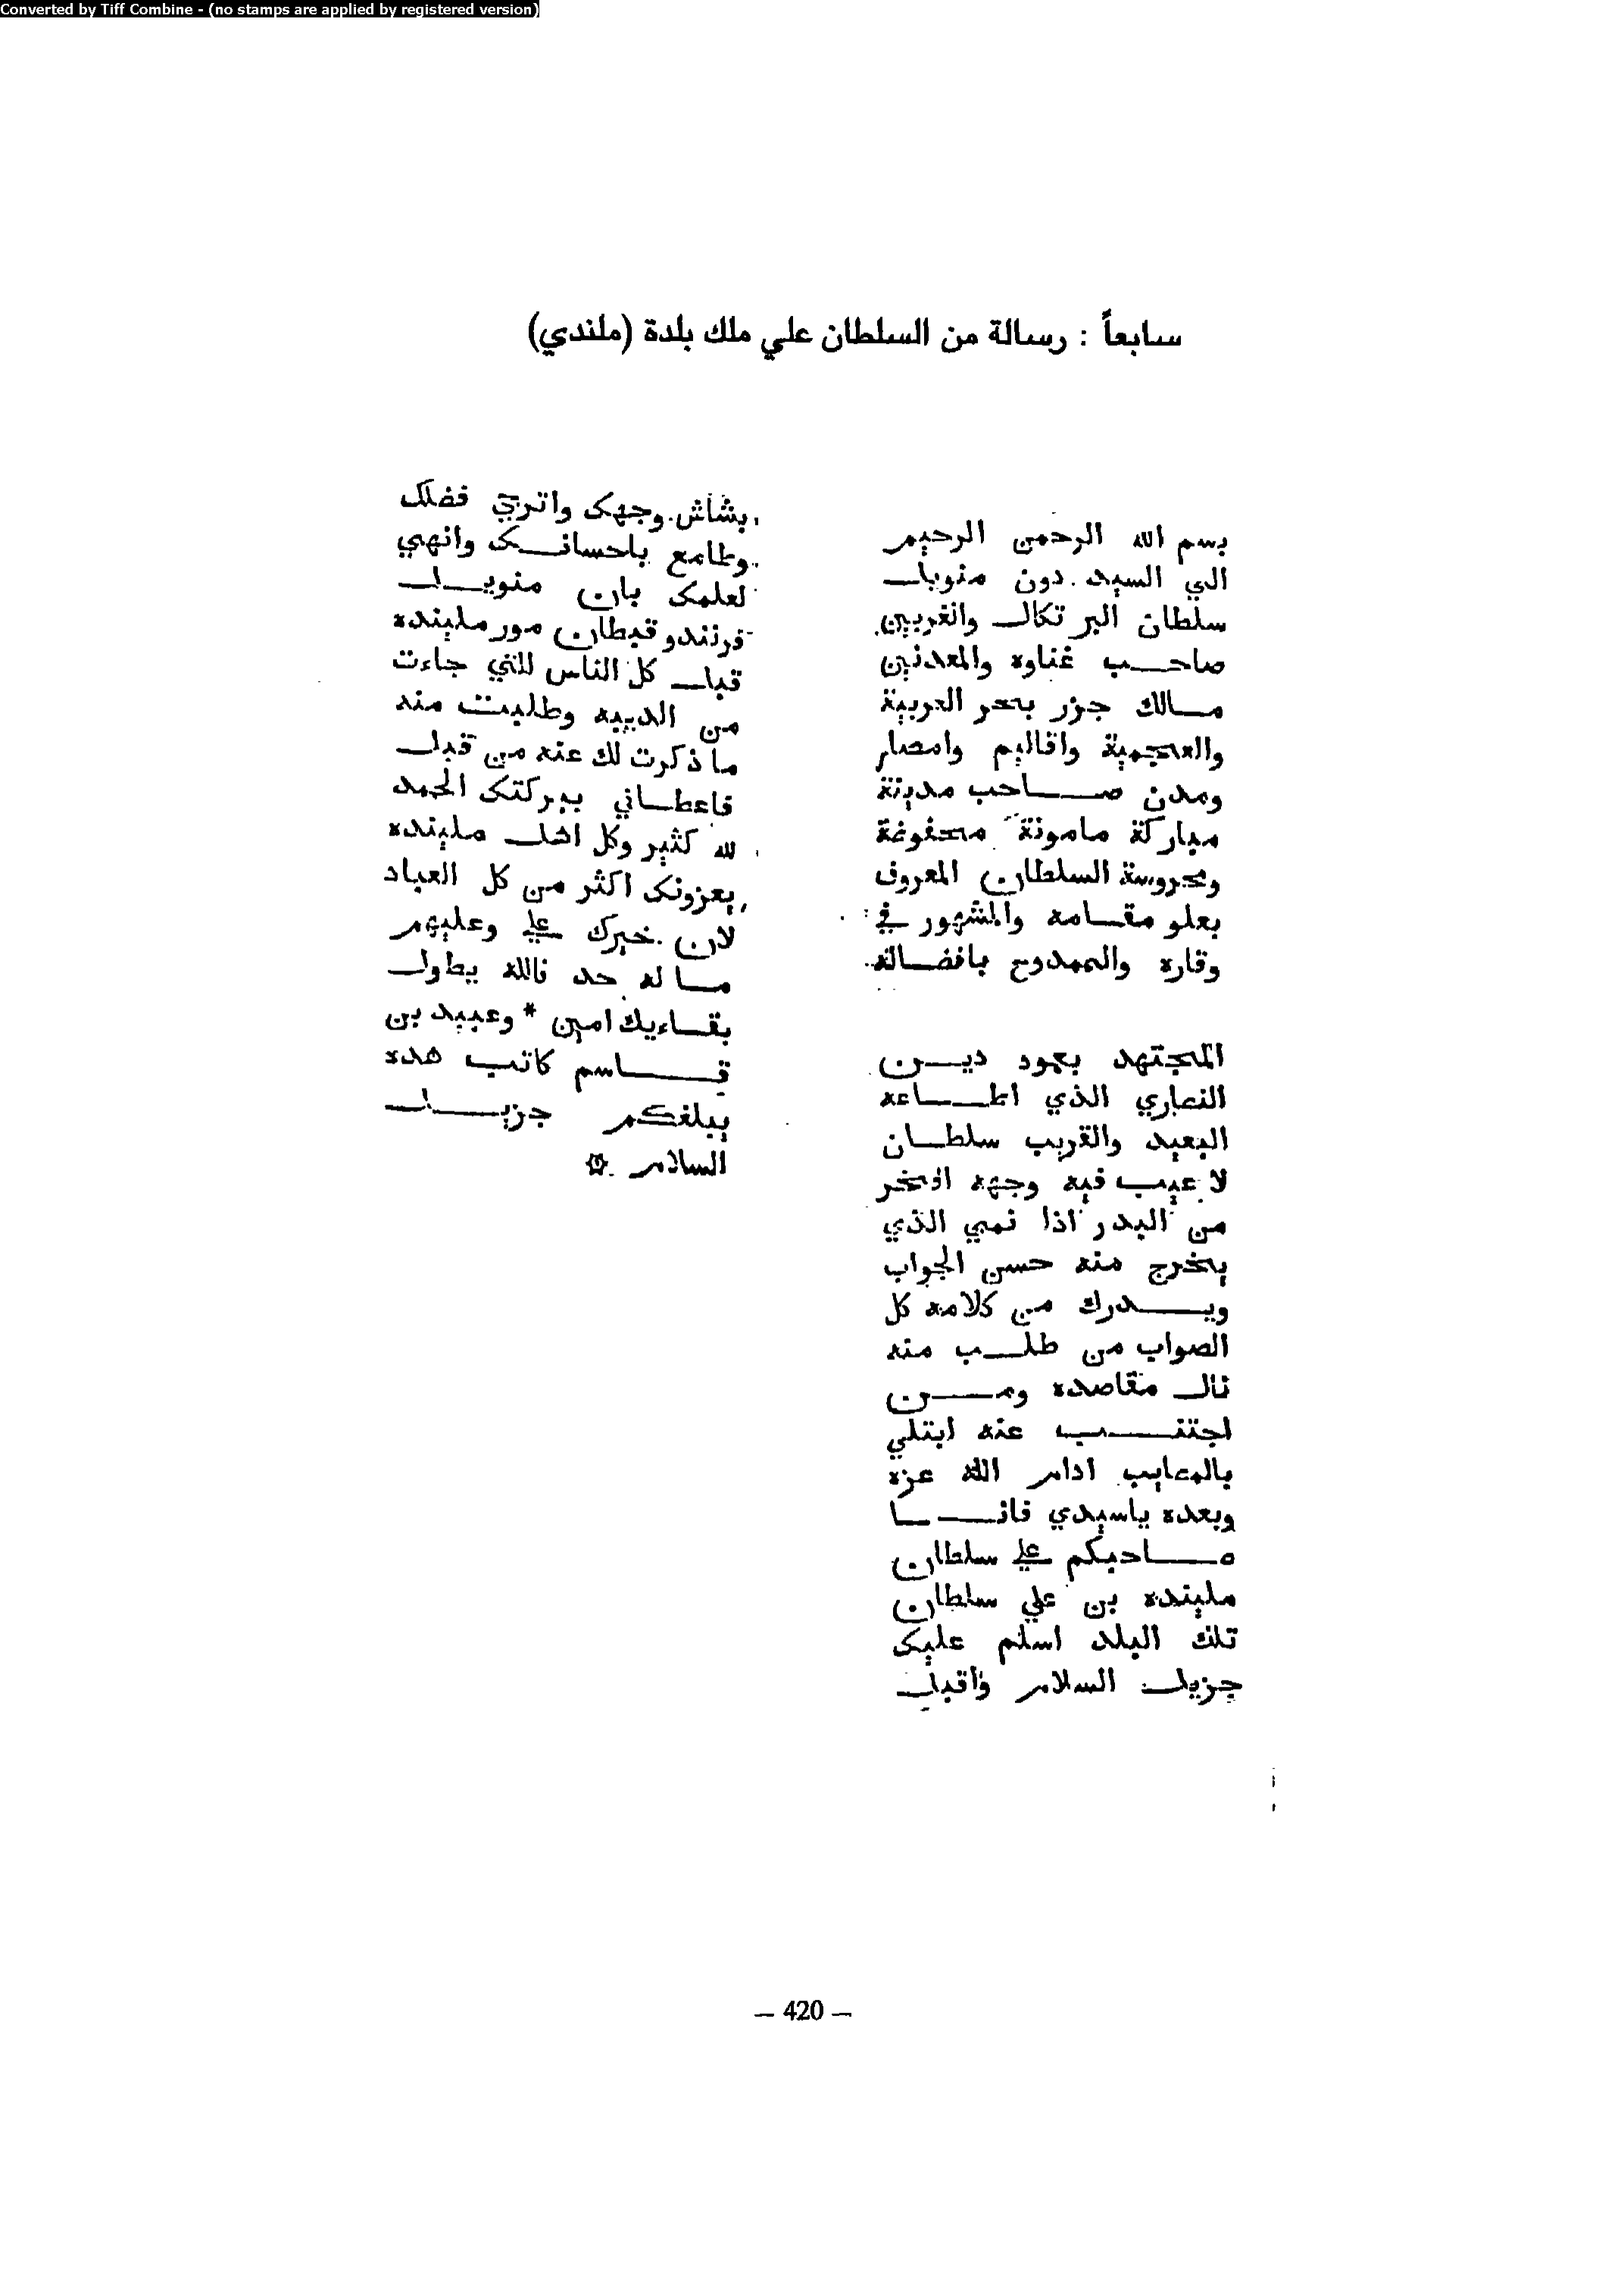 Converted by Tiff Combine - (no stamps are applied by registered version)
سابعاً : رسالة من السلطان علي ملك بلدة (ملندي)
بسم الله الرحمن الرحيم
الي السيد دون منويل
سلطان البرتكال والغربين
صاحب غناوه والمعدنين
مالك جزر بحر العربية
والعجمية واقاليم وامصار
ومدن صاحب مدينة
مباركة مامونة محفوظة
ومحروسة السلطان المعروف
بعلو مقامه والمشهور في
وقاره والممدوح بافضاله
المجتهد بعمود دين
النصاري الذي اطاعه
البعيد والقريب سلطان
لا عيب فيه وجهه افخر
من البدر اذا نمي الذي
يخرج منه حسن الجواب
ويدرك من كلامه كل
الصواب من طلب منه
نال مقاصده ومن
اجتنب عنه ابتلي
بالمصايب ادام الله عزه
وبعده ياسيدي فانا
صاحبكم علي سلطان
ملينده بن علي سلطان
تلك البلد اسلم عليك
جزيل السلام واقبل
بشاش وجهك واترجي فضلك
وطامع باحسانك وانهي
لعلمك بان منويل
فرنندو قبطان مور ملينده
قبل كل الناس للتي جاءت
من الديبه وطلبت منه
ما ذكرت لك عنه من قبل
فاعطاني ببركتك الحمد
لله كثير وكل اهل ملينده
يعزونك اكثر من كل العباد
لان خيرك علي وعليهم
ما له حد فالله يطول
بقاءيك امين * وعبيد بن
قاسم كاتب هذه
يبلغكم جزيل
السلام ۞
— 420 —